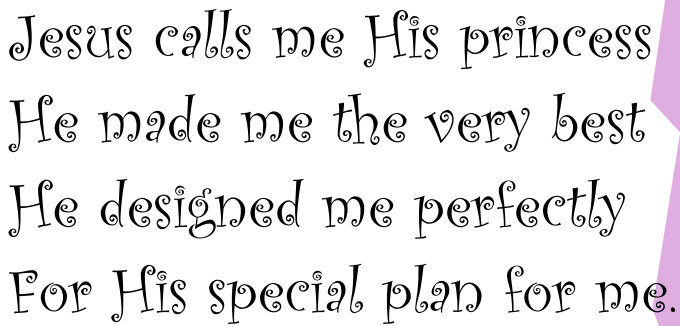 Jesus calls me His princess
He made me the very best
He designed me perfectly
For His special plan for me.